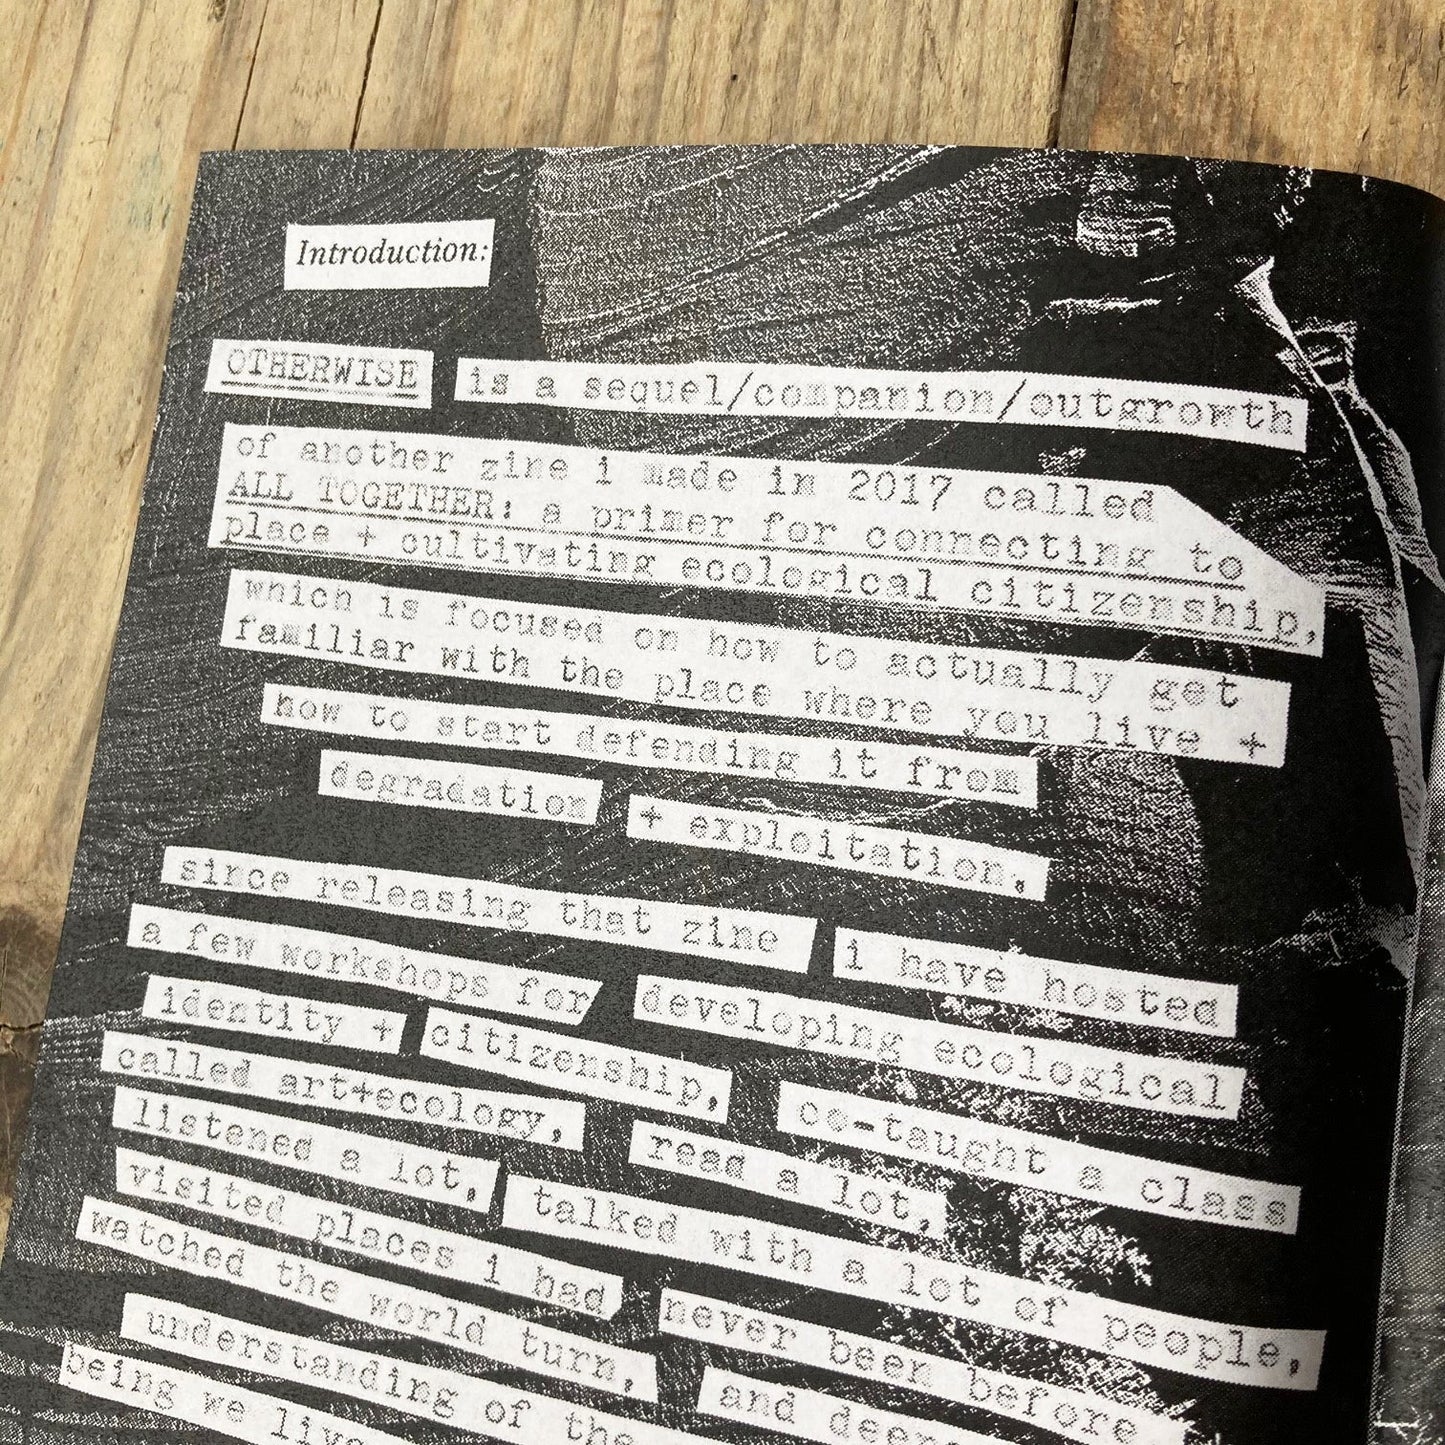 Introduction:
OTHERWISE is a sequel/companion/outgrowth
of another zine i made in 2017 called
ALL TOGETHER: a primer for connecting to
place + cultivating ecological citizenship,
which is focused on how to actually get
familiar with the place where you live +
how to start defending it from
degradation + exploitation.
since releasing that zine i have hosted
a few workshops for developing ecological
identity + citizenship, co-taught a class
called art+ecology, read a lot,
listened a lot, talked with a lot of people,
visited places i had never been before
watched the world turn, and
understanding of the
being we